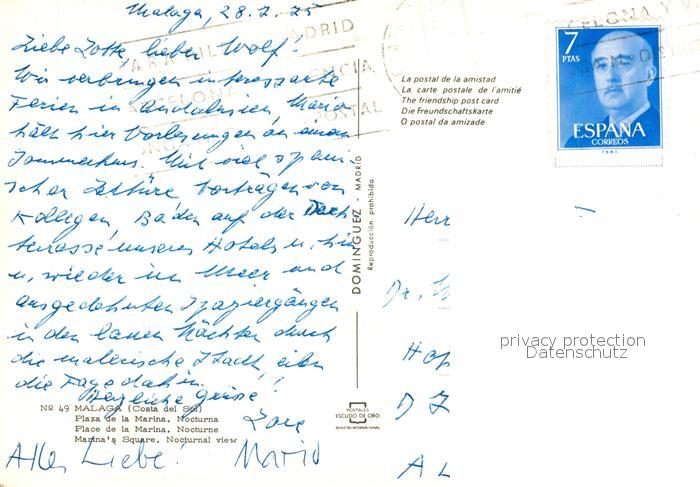 Malaga, 28.7.75
Liebe Lotte, lieber Wolf!
Wir verbringen interessante
Ferien in Andalusien, Mario
hält hier Vorlesungen an einem
Sommerkurs. Mit viel spani-
scher Lektüre, Vorträgen von
Kollegen, Baden auf der Dach
terrasse unseres Hotels u. hin
u. wieder im Meer und
ausgedehnten Spaziergängen
in den lauen Nächten durch
die malerische Stadt eilen
die Tage dahin.
Herzliche Grüsse!
Alles Liebe! Mario
La postal de la amistad
La carte postale de l'amitié
The friendship post card
Die Freundschaftskarte
O postal da amizade
7
PTAS
ESPAÑA
CORREOS
F.N.M.T.
DOMINGUEZ - MADRID
Reproducción prohibida
Herr
Dr.
D
A L
privacy protection
Datenschutz
Nº 49 MALAGA (Costa del Sol)
Plaza de la Marina. Nocturna
Place de la Marina. Nocturne
Marina's Square. Nocturnal view
POSTALES
ESCUDO DE ORO
REGISTRO INTERNACIONAL